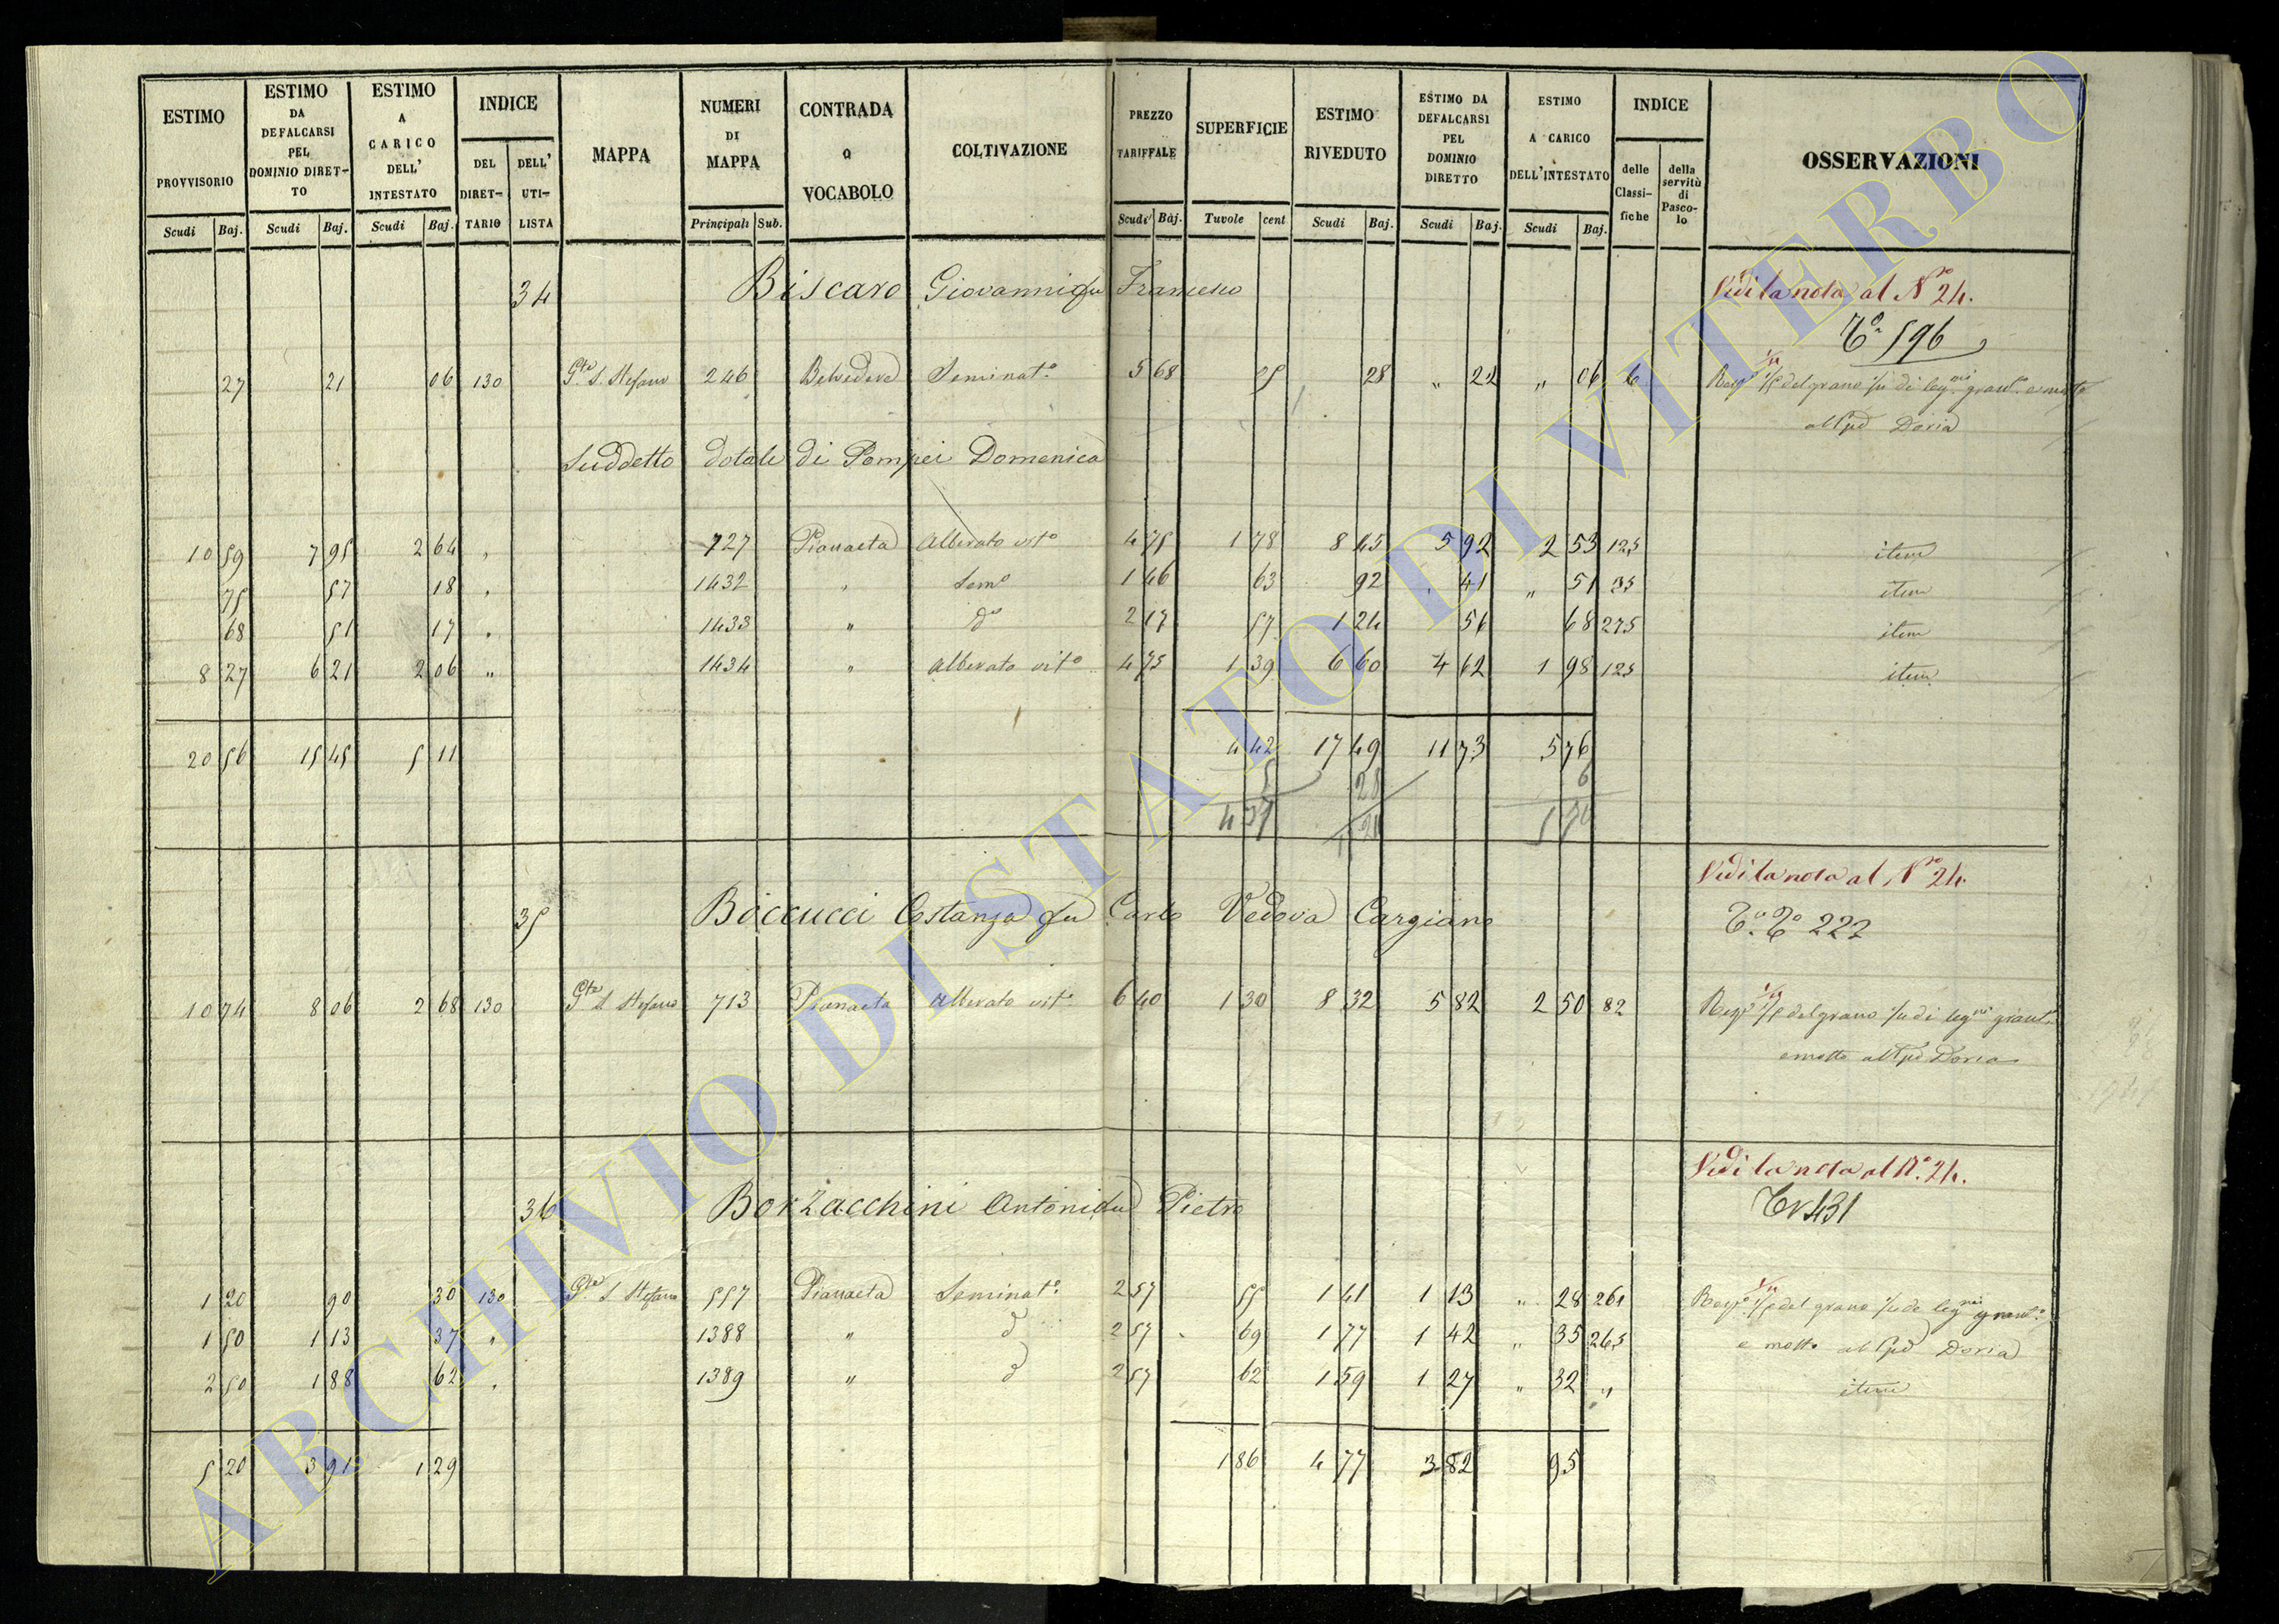 ESTIMO PROVVISORIO Scudi Baj.
ESTIMO DA DEFALCARSI PEL DOMINIO DIRETTO Scudi Baj.
ESTIMO A CARICO DELL' INTESTATO Scudi Baj.
INDICE DEL DIRETTARIO DELL' UTILISTA
MAPPA
NUMERI DI MAPPA Principali Sub.
CONTRADA O VOCABOLO
COLTIVAZIONE
PREZZO TARIFFALE Scudi Baj.
SUPERFICIE Tavole cent
ESTIMO RIVEDUTO Scudi Baj.
ESTIMO DA DEFALCARSI PEL DOMINIO DIRETTO Scudi Baj.
ESTIMO A CARICO DELL'INTESTATO Scudi Baj.
INDICE delle Classifiche della servitù di Pascolo
OSSERVAZIONI
34 Biscaro Giovanni fu Francesco Vedi la nota al N° 24.
596
27 21 06 130 S. Stefano 246 Belvedere Seminat.° 5 68 5 28 " 22 " 06 6 del grano
Doria
Suddetto dotale di Pompei Domenica
10 59 7 95 2 64 " 727 Pianaeta Alberato vit° 4 75 1 78 8 45 5 92 2 53 125 item
75 57 18 " 1432 " Sem° 1 46 63 92 41 " 51 35 item
68 51 17 " 1433 " d° 2 17 57 1 24 56 68 275 item
8 27 6 21 2 06 " 1434 " Alberato vit° 4 75 1 39 6 60 4 62 1 98 125 item
20 56 15 45 5 11 4 42 17 49 11 73 5 76
5 28 6
4 37
Vedi la nota al N° 24.
35 Boccucci Costanza fu Carlo Vedova Cargiano
222
10 74 8 06 2 68 130 S. Stefano 713 Pianaeta Alberato vit° 6 40 1 30 8 32 5 82 2 50 82 del grano
Doria
Vedi la nota al N° 24.
36 Borzacchini Antonio fu Pietro
431
1 20 90 30 130 S. Stefano 557 Pianaeta Seminat° 2 57 55 1 41 1 13 " 28 261 del grano
1 50 1 13 37 " 1388 " d 2 57 69 1 77 1 42 " 35 265 Doria
2 50 1 88 62 " 1389 " d 2 57 62 1 59 1 27 " 32 " item
5 20 3 91 1 29 1 86 4 77 3 82 95
ARCHIVIO DI STATO DI VITERBO